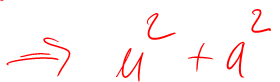 ⇒ u² + a²